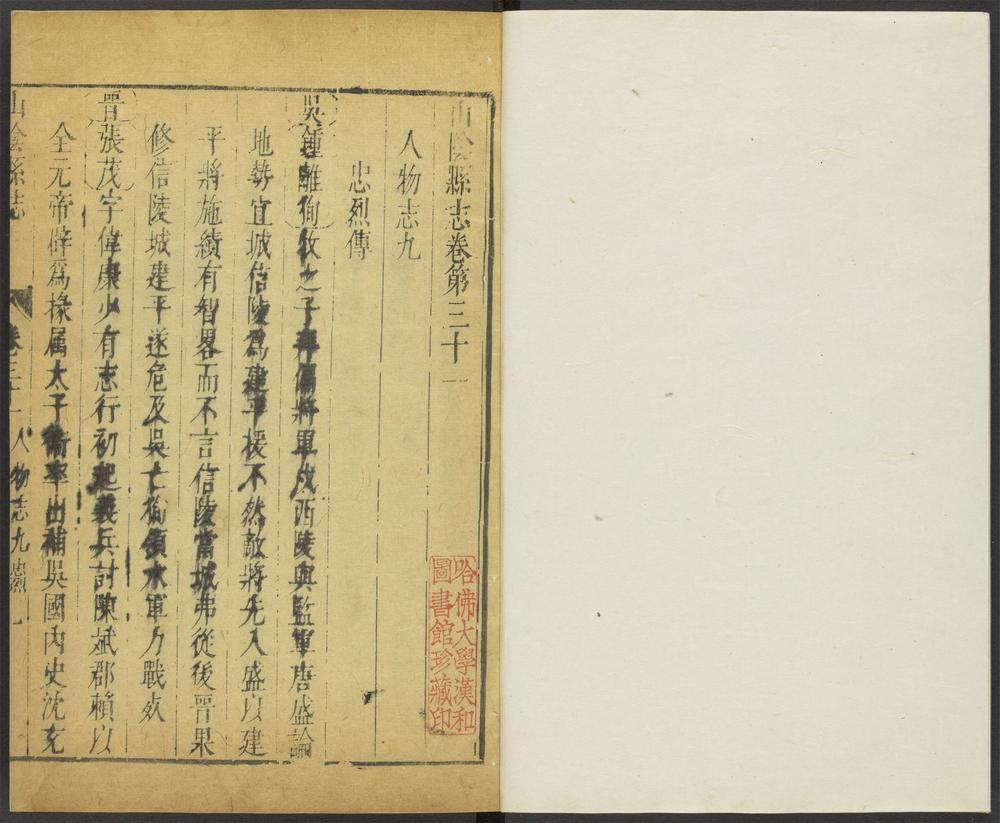 山陰縣志卷第三十一
人物志九
忠烈傳
吳鍾離徇牧之子拜偏將軍戍西陵與監軍唐盛論
地勢宜城信陵爲建平援不然敵將先入盛以建
平將施績有智畧而不言信陵當城弗從後晉果
修信陵城建平遂危及吳亡徇領水軍力戰死
晉張茂字偉康少有志行初起義兵討陳斌郡賴以
全元帝辟爲掾属太子衞率出補吳國內史沈充
山陰縣志
卷三十一人物志九忠烈
一
哈佛大學漢和
圖書館珍藏印